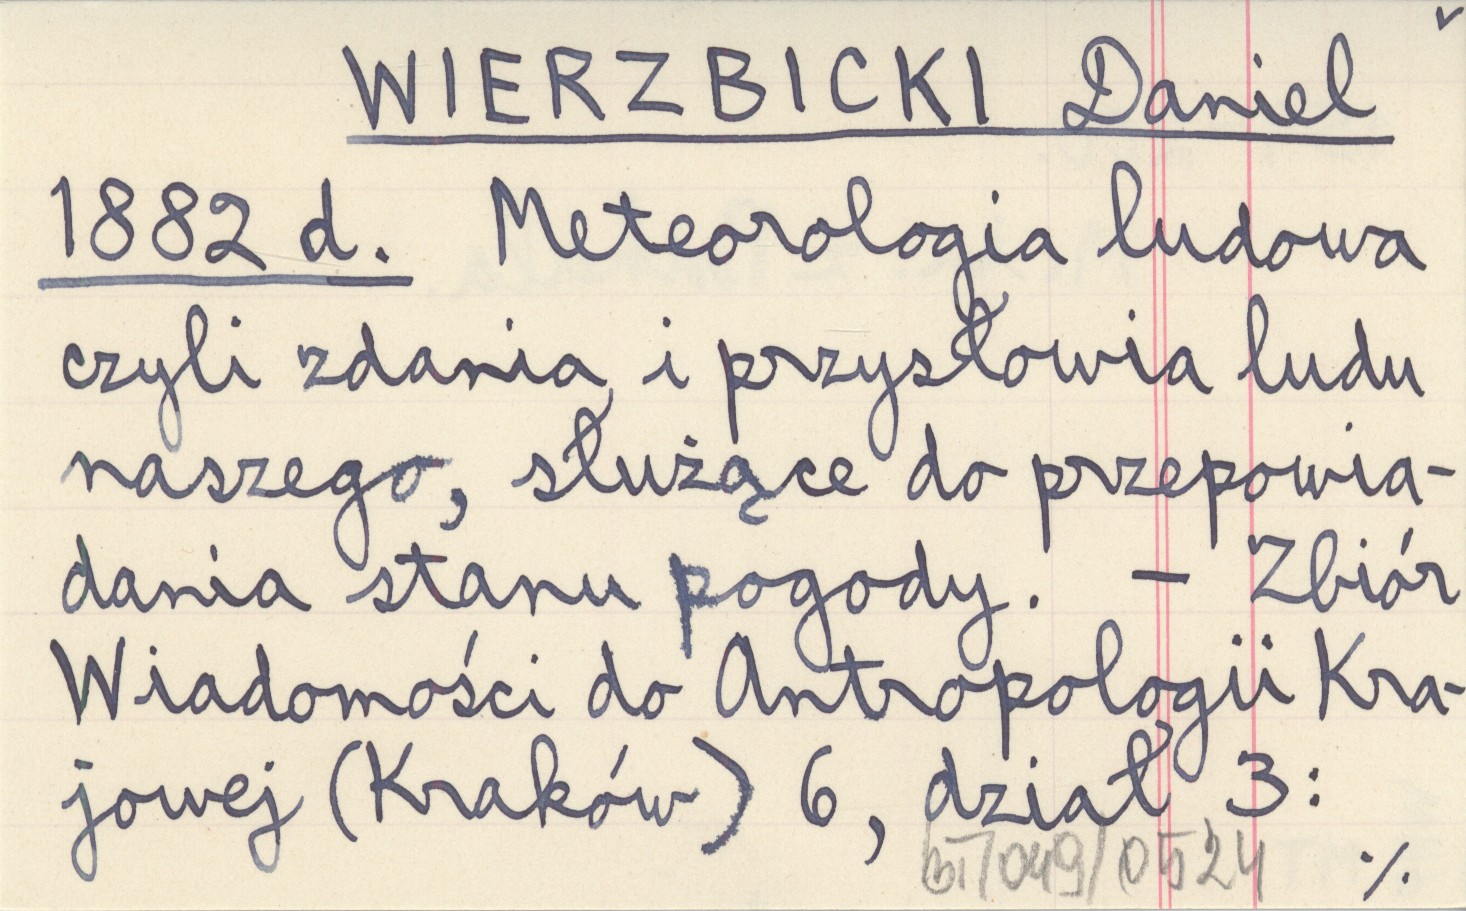 WIERZBICKI Daniel
1882 d. Meteorologia ludowa
czyli zdania i przysłowia ludu
naszego, służące do przepowia-
dania stanu pogody. - Zbiór
Wiadomości do Antropologii Kra-
jowej (Kraków) 6, dział 3:
/049/0524
·/.